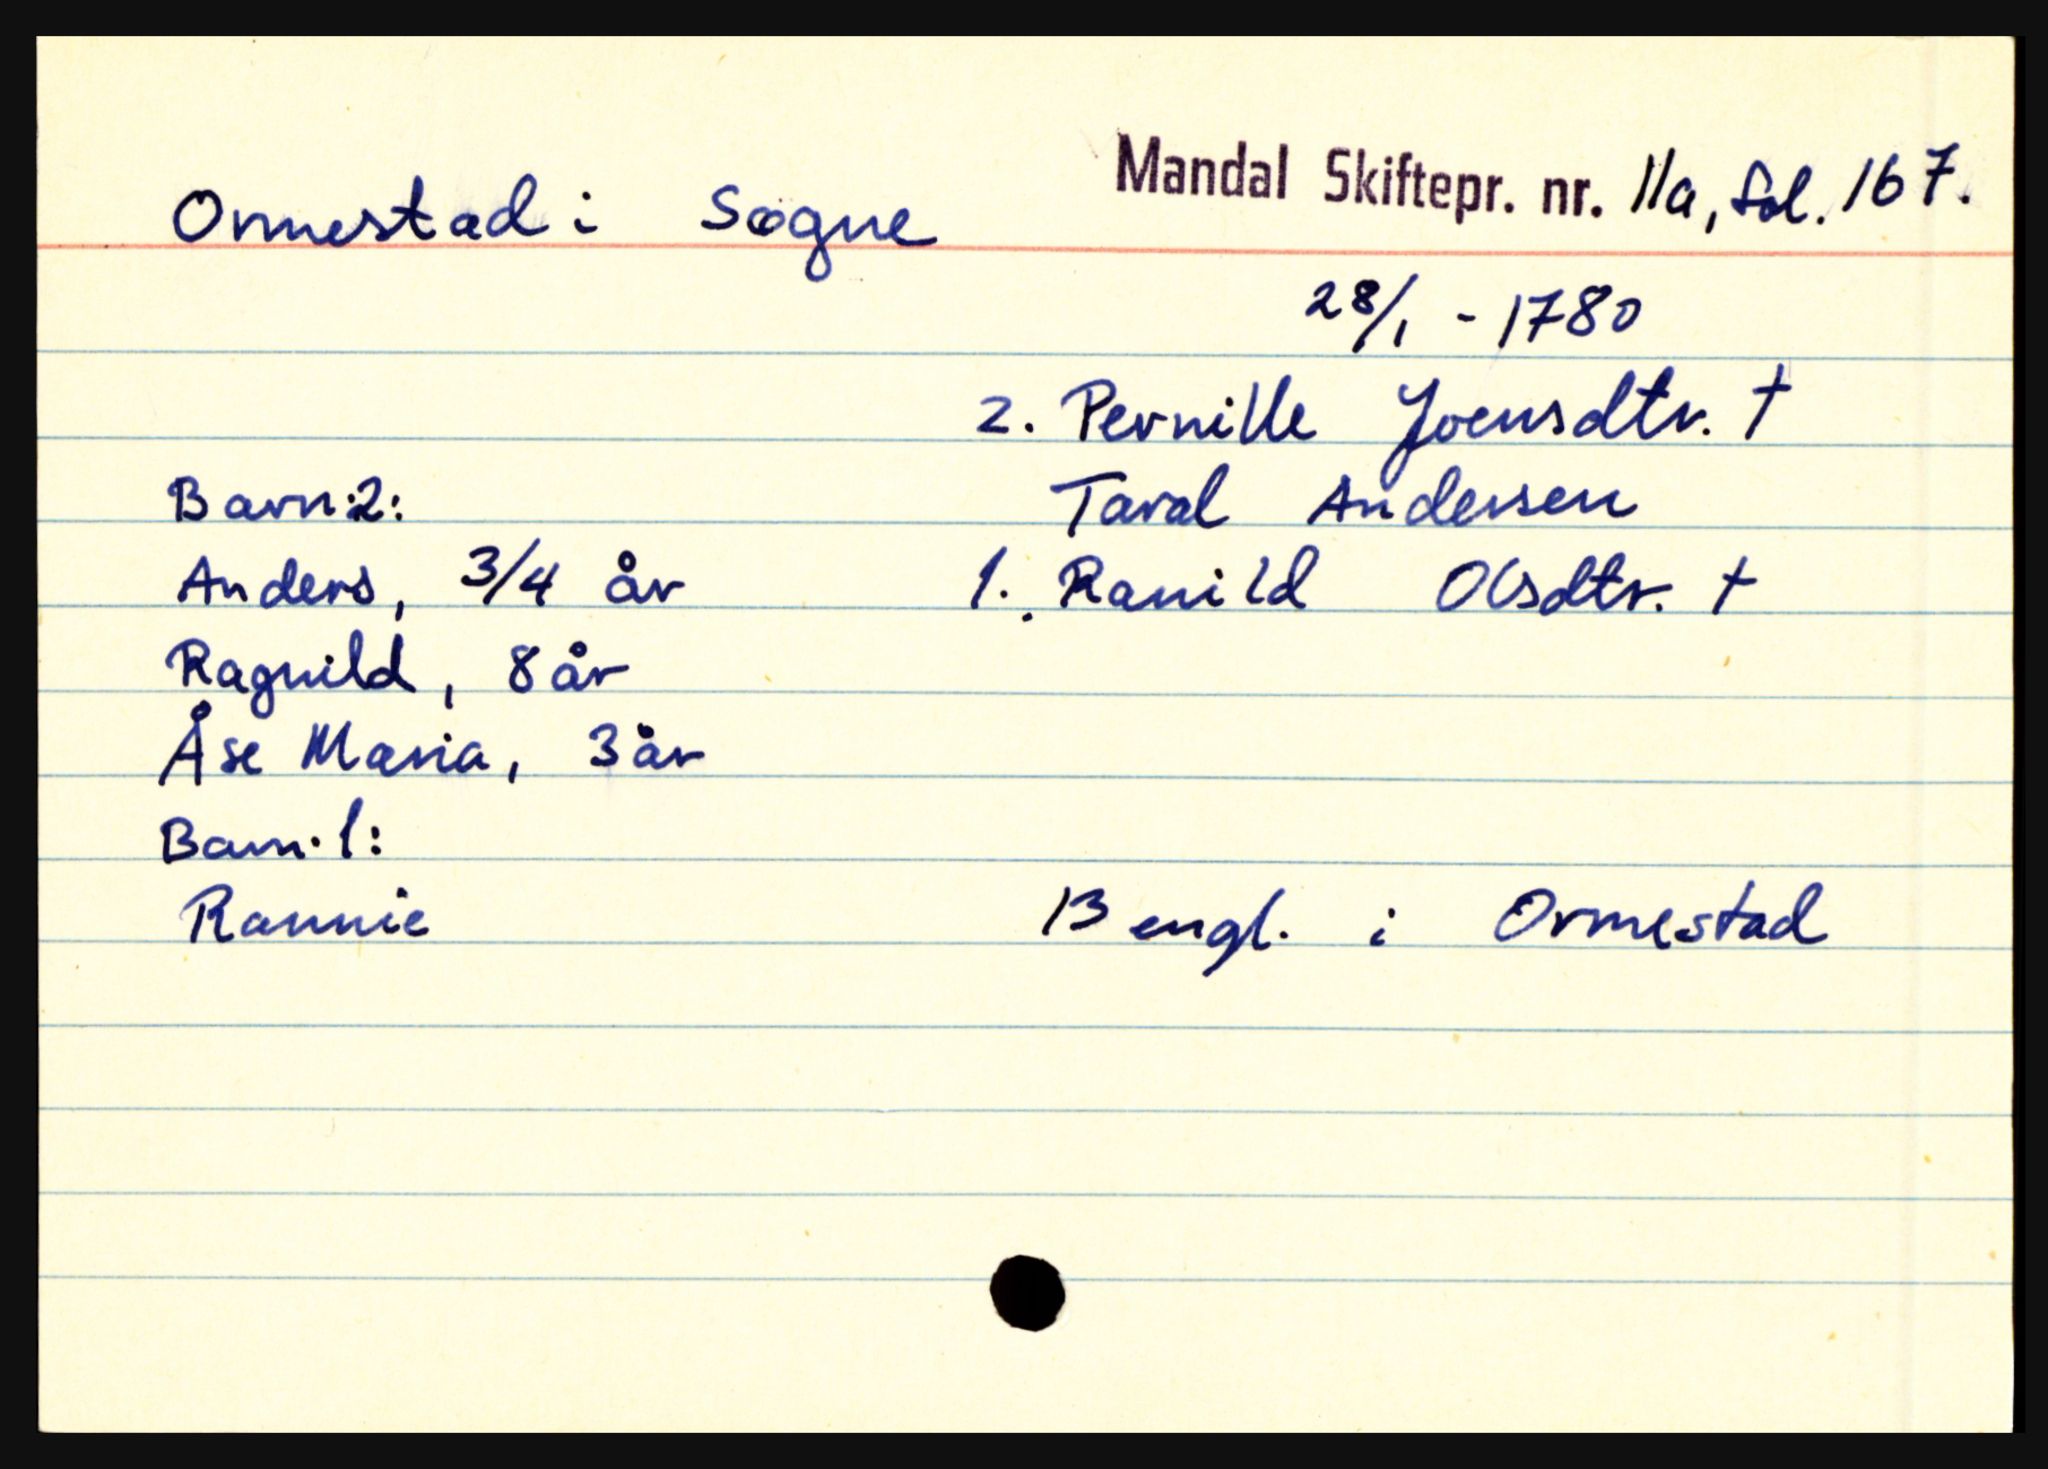 Mandal Skiftepr. nr. 11a, fol. 167.
Ormestad i Søgne
28/1 - 1780
2. Pernille Joensdtr. †
Barn: 2:
Taral Andersen
Anders, 3/4 år
1. Ranild Olsdtr. †
Ragnild, 8 år
Åse Maria, 3 år
Barn. 1:
Rannie
13 engl. i Ormestad